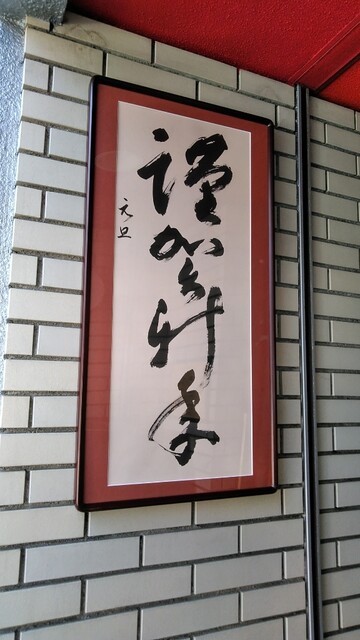 謹賀新年
元旦